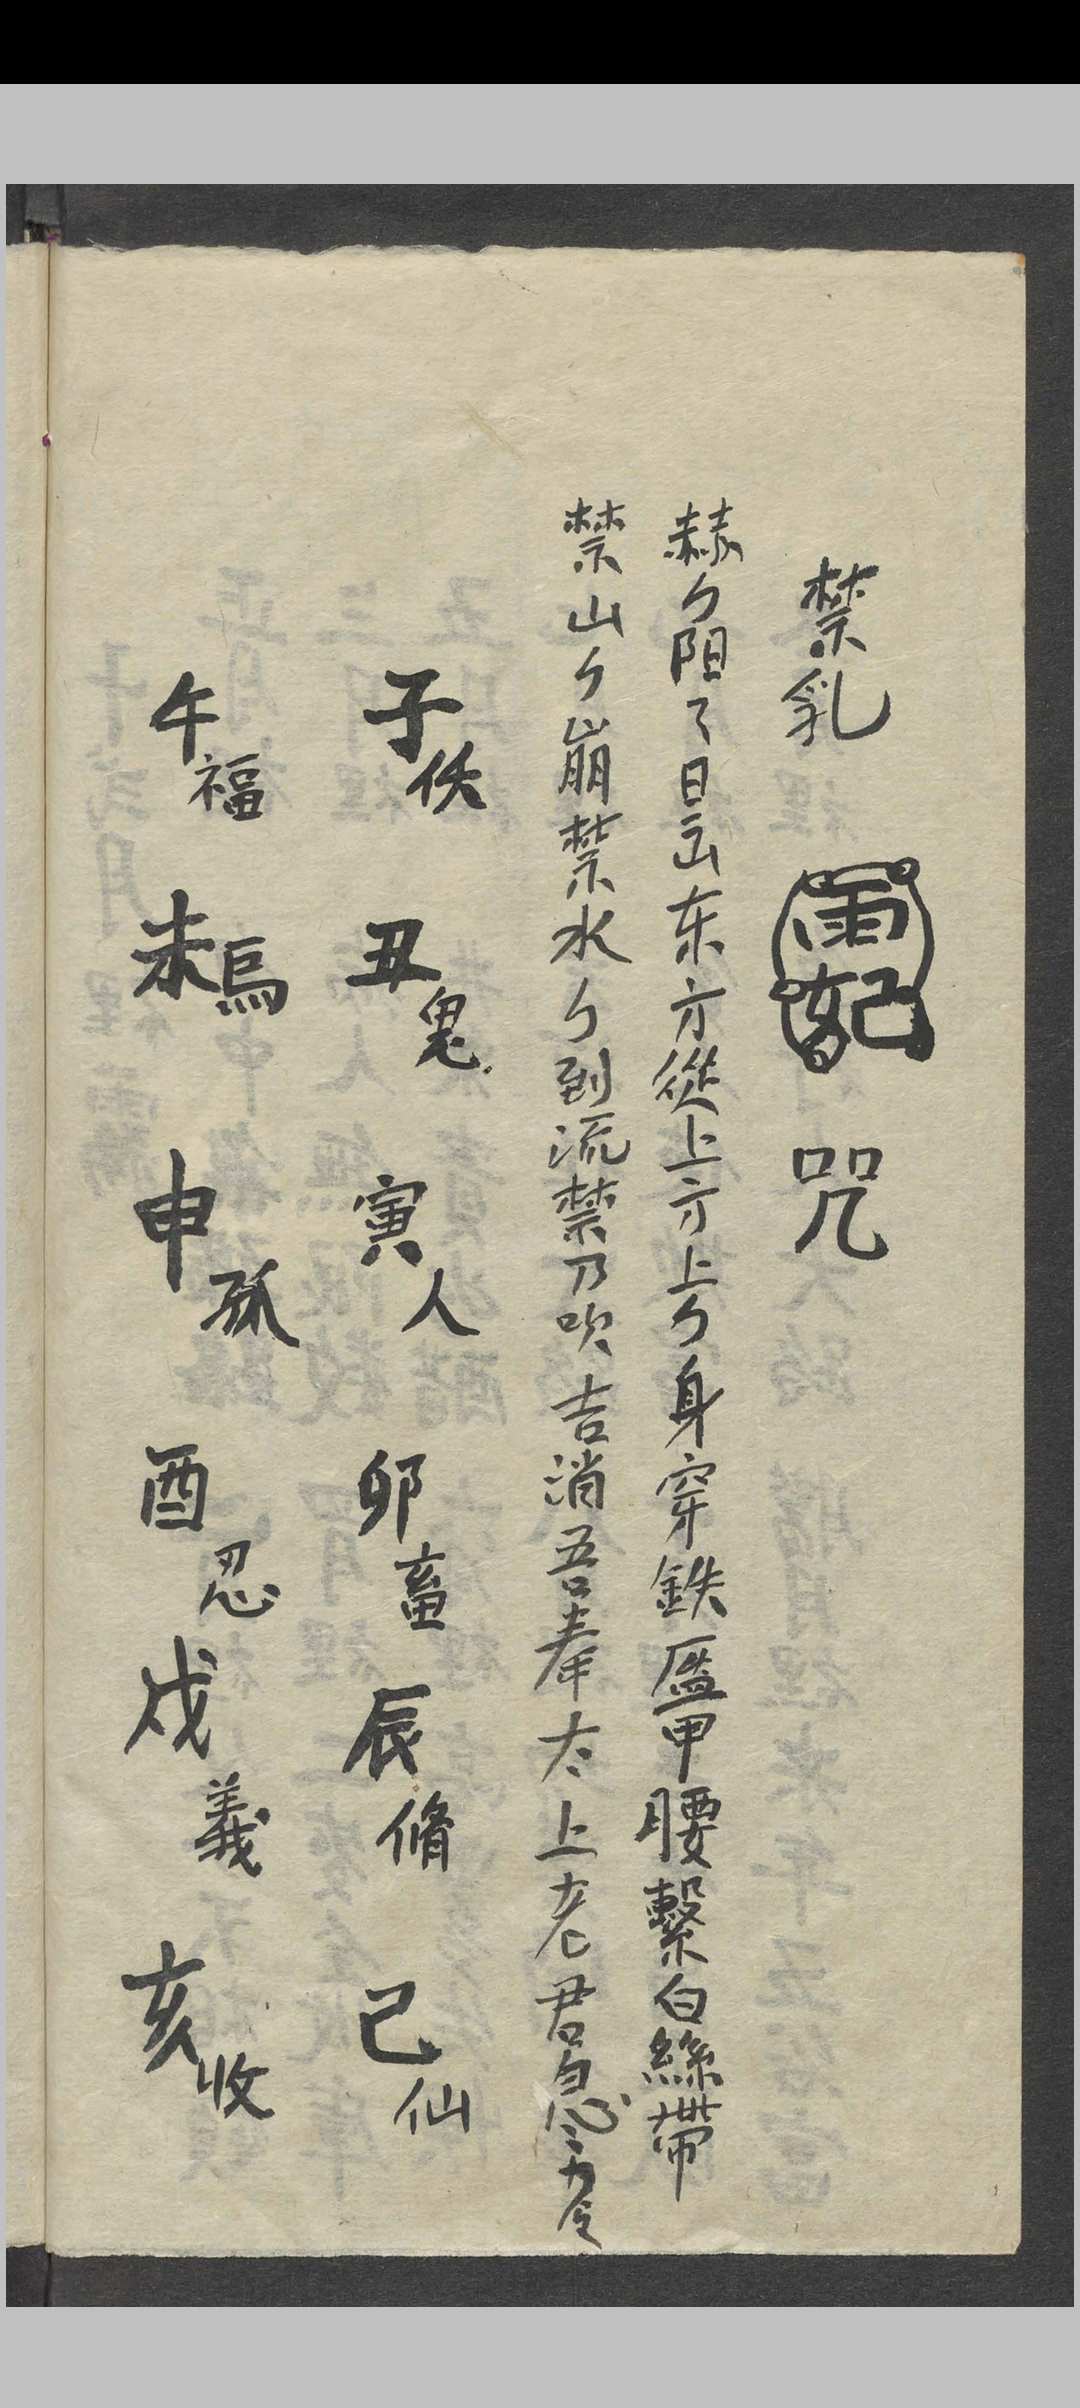 禁乳 咒
赫々阳々日出东方從上方上々身穿鉄盔甲腰繫白絲帶
禁山々崩禁水々到流禁乃吹吉消吾奉太上老君急令
子佚 丑鬼 寅人 卯畜 辰脩 己仙
午福 未烏 申孤 酉忍 戌義 亥收